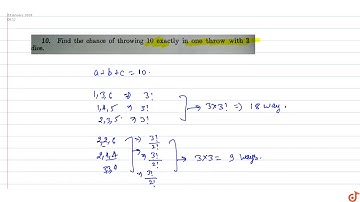 10. Find the chance of throwing 10 exactly in one throw with 3
dice.
a+b+c = 10.
1,3,6 ⇒ 3!
1,4,5 ⇒ 3!
2,3,5 ⇒ 3!
→ 3×3! ⇒ 18 way.
2,2,6
2,4,4
3,3,4
⇒ 3!/2!
⇒ 3!/2!
→ 3×3 = 9 ways.